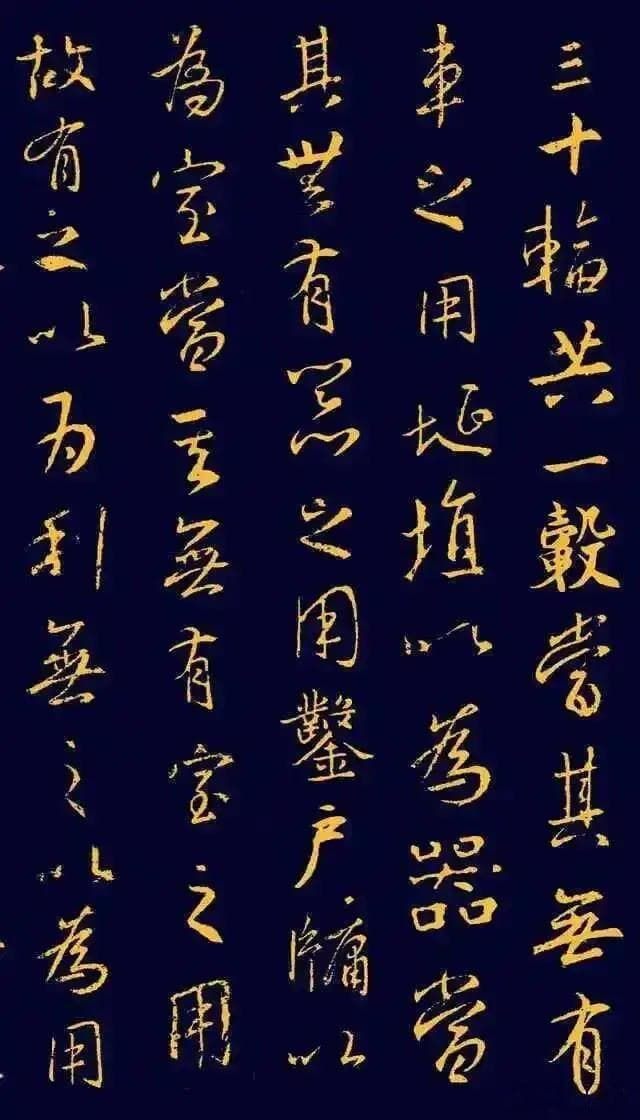 三十輻共一轂當其無有
車之用埏埴以為器當
其無有器之用鑿戶牖以
為室當其無有室之用
故有之以為利無之以為用